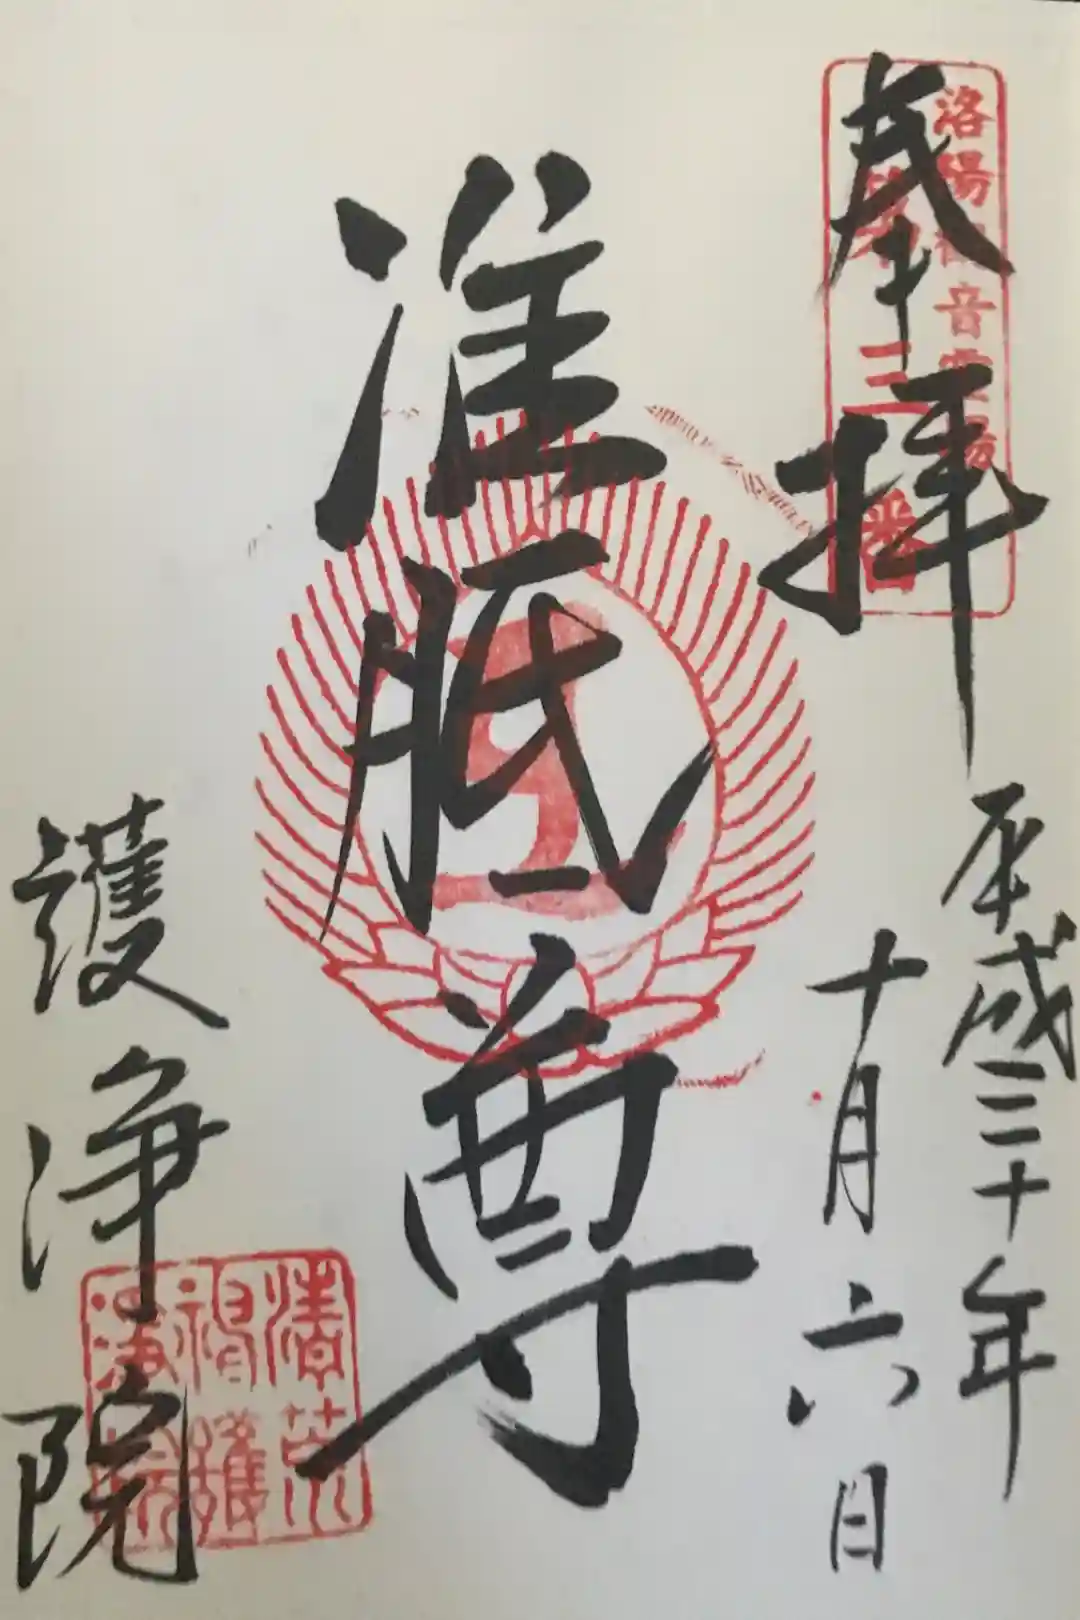 洛陽観音霊場
第三番
奉拝
平成三十年
十月六日
准胝尊
護浄院
清荒
神護
浄院